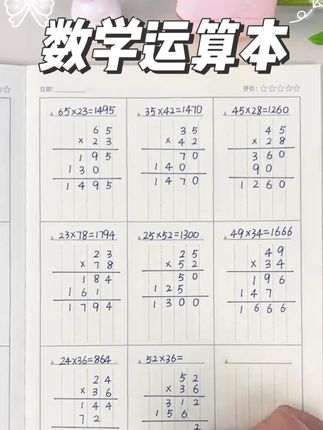 数学运算本
日期:
评价:☆☆☆☆☆
65×23=1495
65
×23
195
130
1495
35×42=1470
35
×42
70
140
1470
45×28=1260
45
×28
360
90
1260
23×78=1794
23
×78
184
161
1794
25×52=1300
25
×52
50
125
1300
49×34=1666
49
×34
196
147
1666
24×36=864
24
×36
144
72
52×36=
52
×36
312
156
2